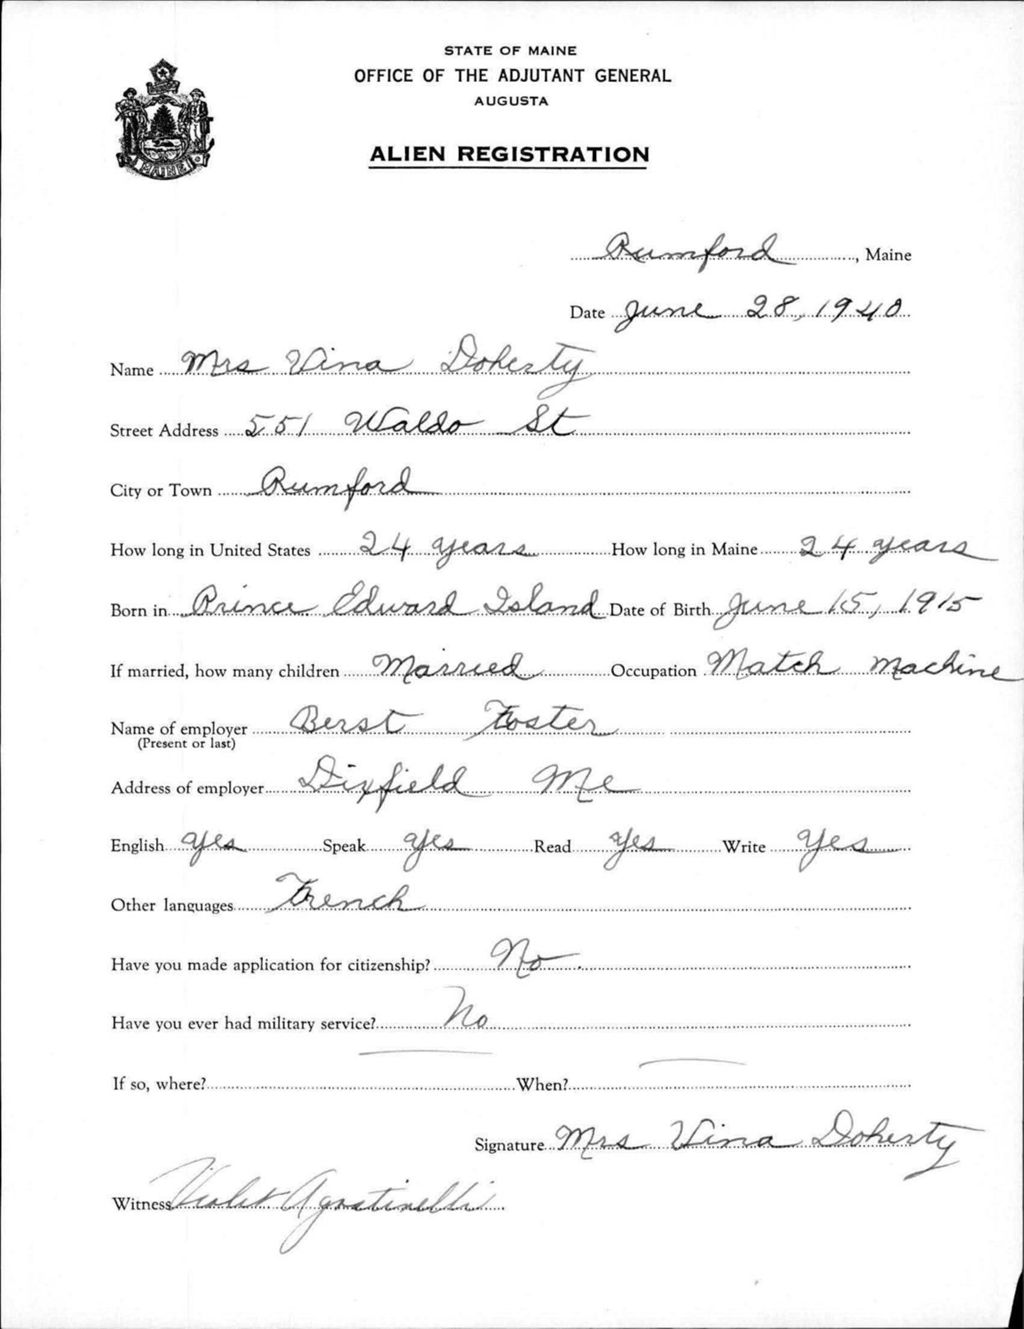 STATE OF MAINE
OFFICE OF THE ADJUTANT GENERAL
AUGUSTA
ALIEN REGISTRATION
MAINE
Rumford, Maine
Date June 28, 1940
Name Mrs Vina Doherty
Street Address 551 Waldo St
City or Town Rumford
How long in United States 24 years How long in Maine 24 years
Born in Prince Edward Island Date of Birth June 15, 1915
If married, how many children Married Occupation Match Machine
Name of employer Berst Foster
(Present or last)
Address of employer Dixfield Me
English Yes Speak Yes Read Yes Write Yes
Other languages French
Have you made application for citizenship? No
Have you ever had military service? No
If so, where? When?
Signature Mrs Vina Doherty
Witness Violet Agostinelli